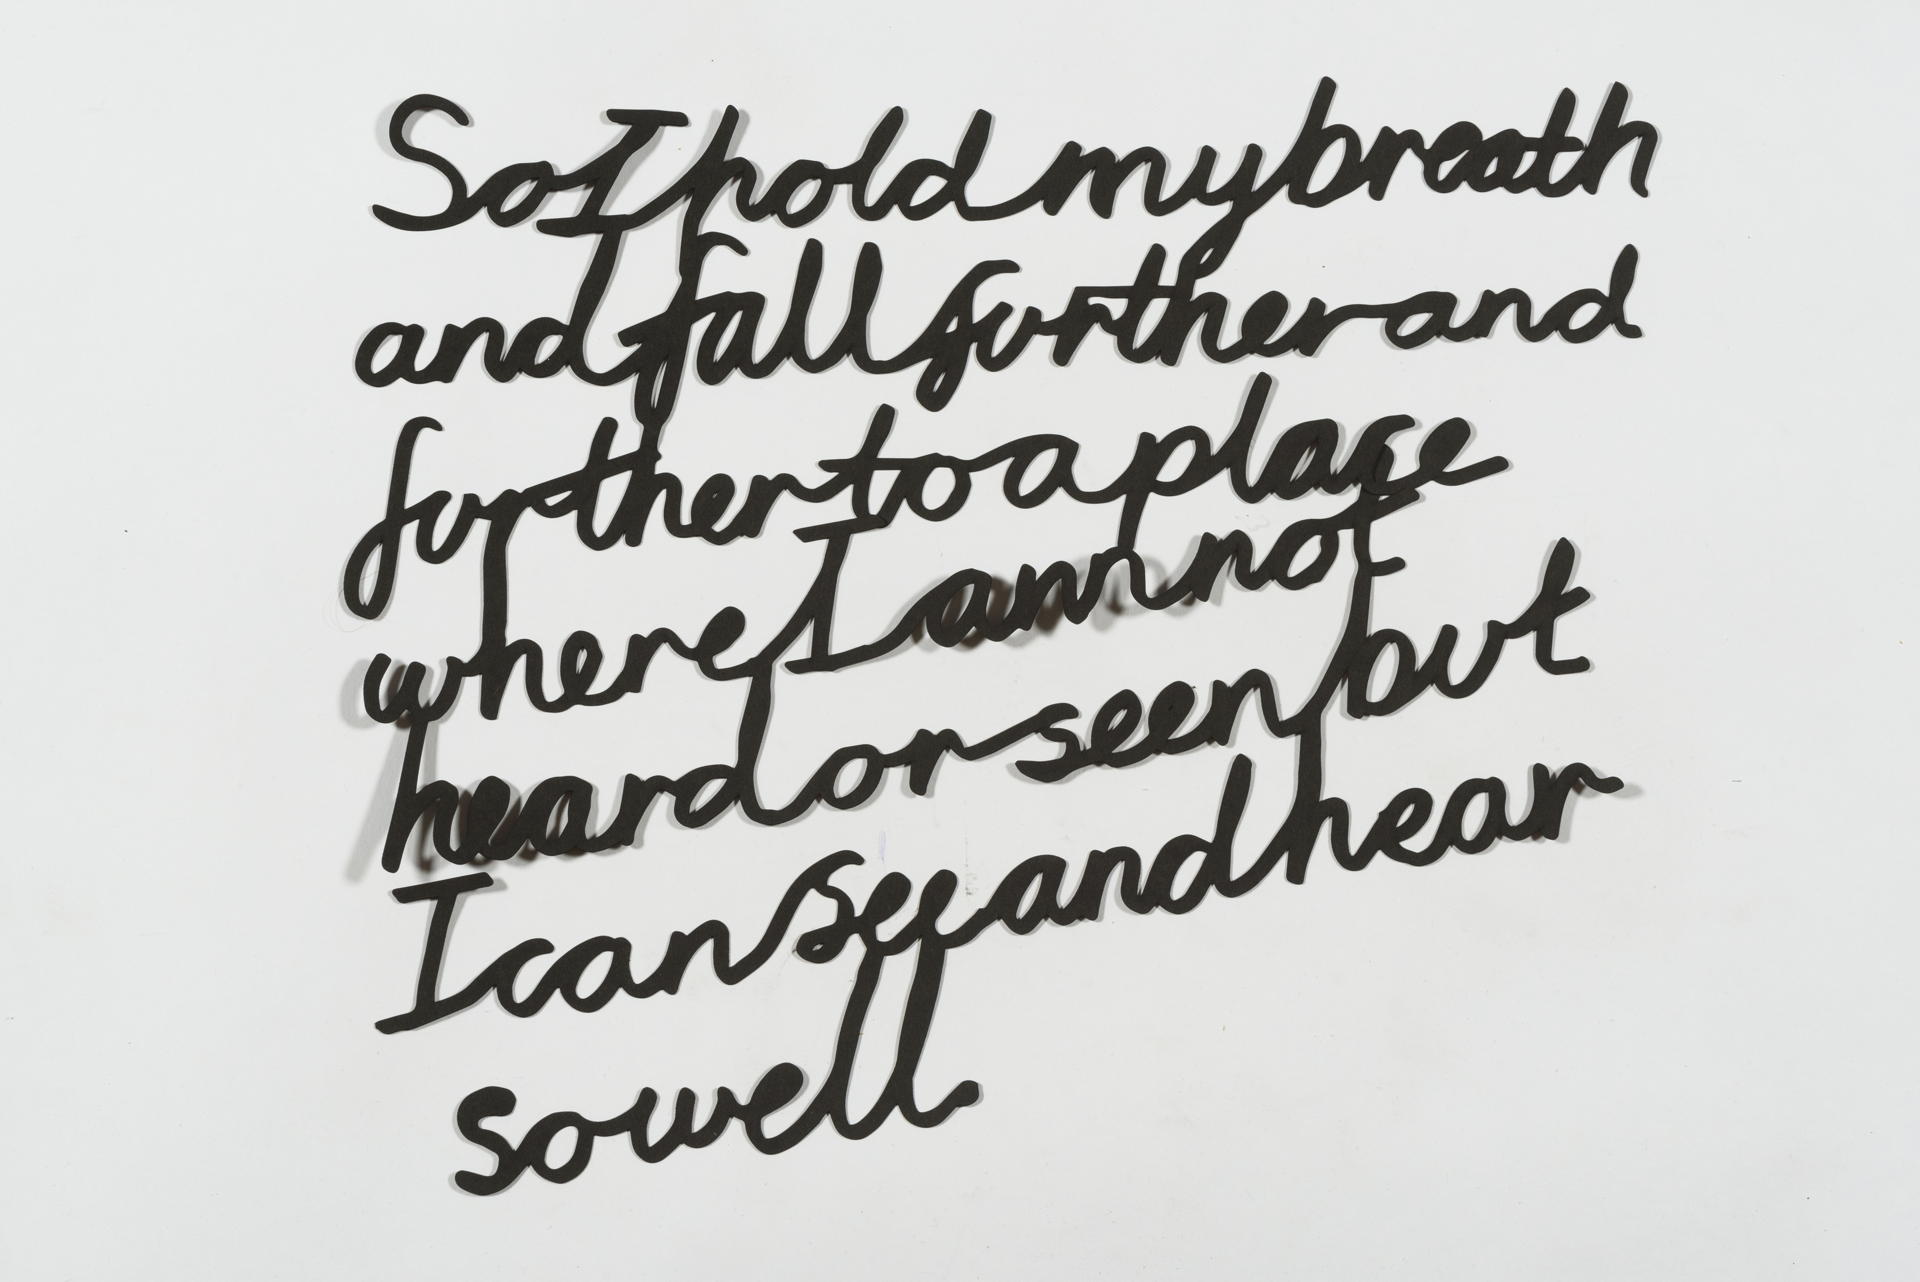 So I hold my breath
and fall further and
further to a place
where I am not
heard or seen but
I can see and hear
so well.